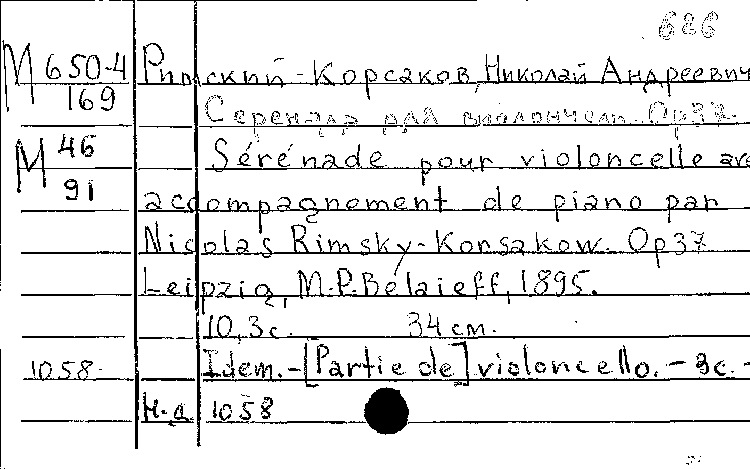 626
М 650-4 Римский-Корсаков, Николай Андреевич
169
Серенада для виолончели. Op37.
М 46 Sérénade pour violoncelle ave
91
accompagnement de piano par
Nicolas Rimsky-Korsakow. Op37
Leipzig, M.P.Bélaieff, 1895.
10,3с. 34 см.
1058. Idem.-[Partie de] violoncello. – 3с. –
Н.д. 1058